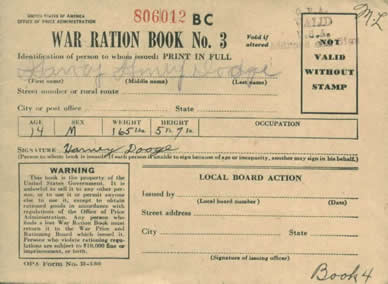 UNITED STATES OF AMERICA
OFFICE OF PRICE ADMINISTRATION
806012 BC
WAR RATION BOOK No. 3
Void if altered
NOT VALID WITHOUT STAMP
Identification of person to whom issued: PRINT IN FULL
Harvey Dodge
(First name) (Middle name) (Last name)
Street number or rural route
City or post office State
AGE SEX WEIGHT HEIGHT OCCUPATION
14 M 165 Lbs. 5 Ft. 7 In.
SIGNATURE Harvey Dodge
(Person to whom book is issued. If such person is unable to sign because of age or incapacity, another may sign in his behalf.)
WARNING
This book is the property of the
United States Government. It is
unlawful to sell it to any other per-
son, or to use it or permit anyone
else to use it, except to obtain
rationed goods in accordance with
regulations of the Office of Price
Administration. Any person who
finds a lost War Ration Book must
return it to the War Price and
Rationing Board which issued it.
Persons who violate rationing regu-
lations are subject to $10,000 fine or
imprisonment, or both.
LOCAL BOARD ACTION
Issued by
(Local board number) (Date)
Street address
City State
(Signature of issuing officer)
OPA Form No. R-130
Book 4